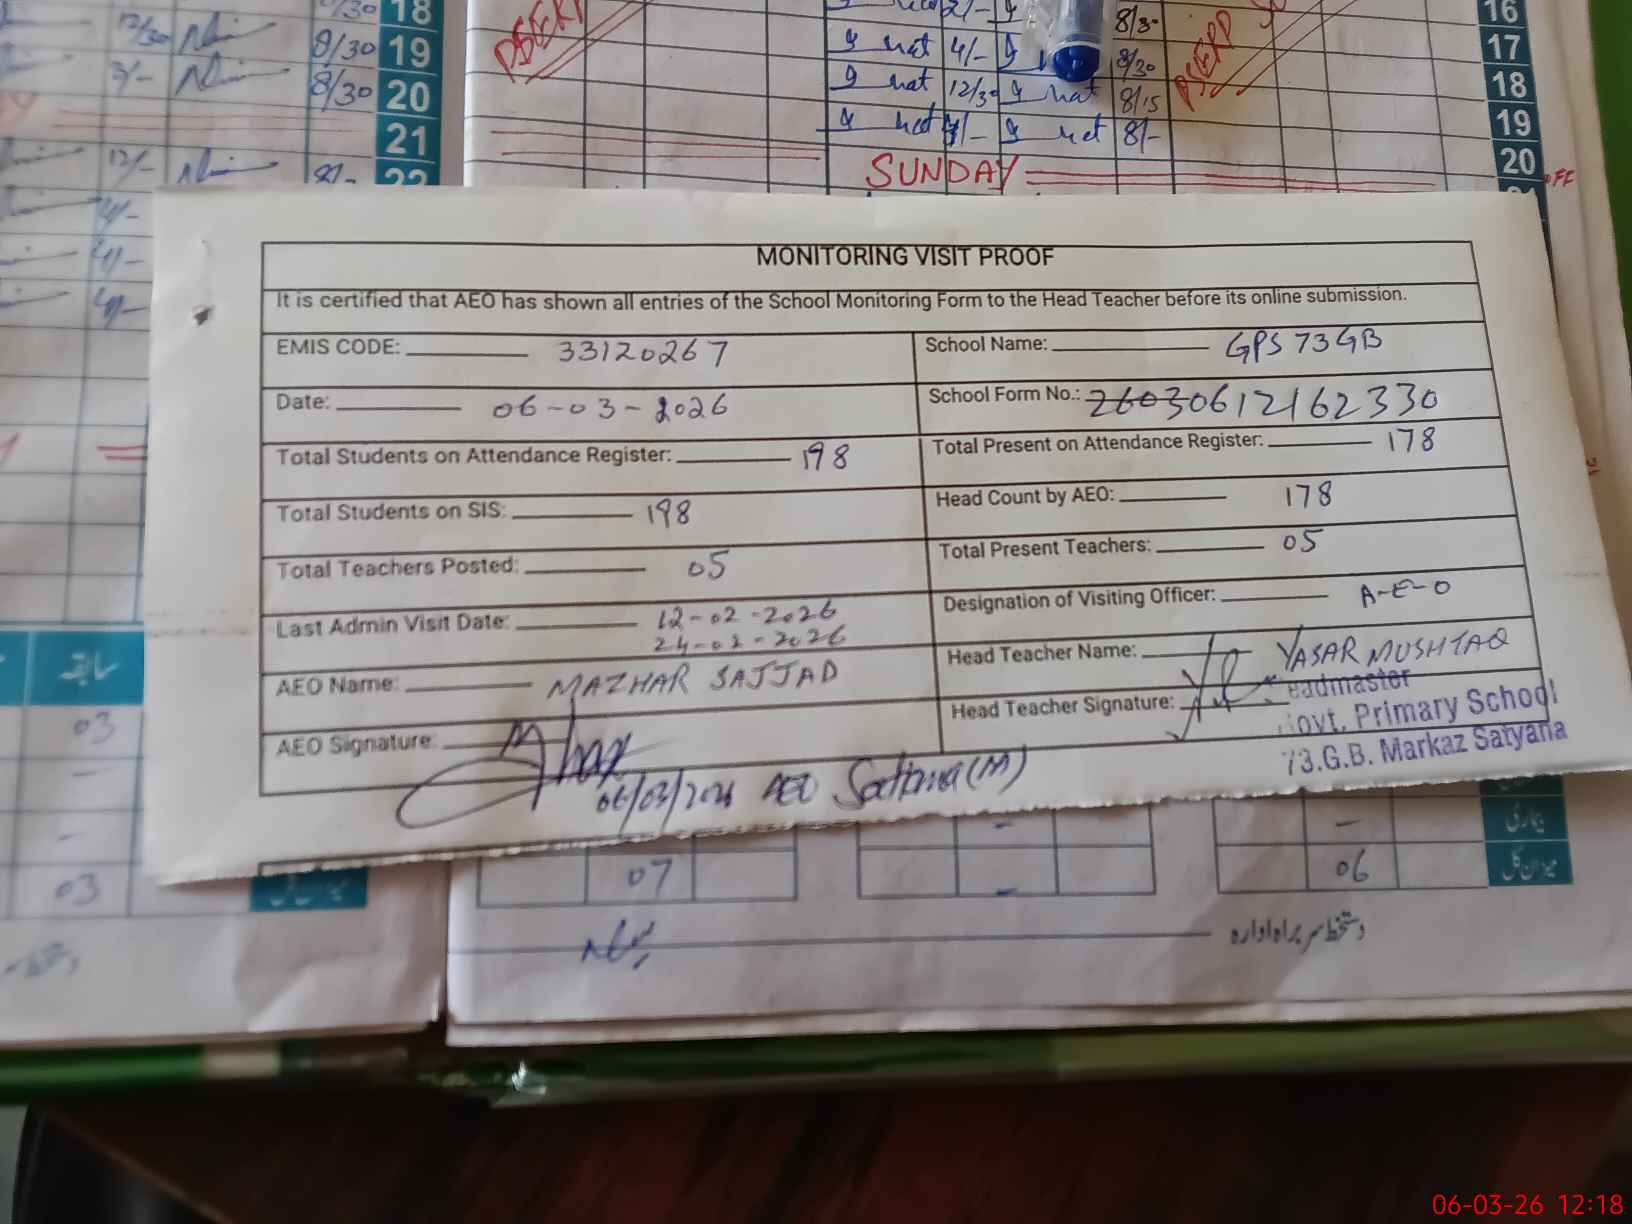 12/30 8/30 18
3/- 8/30 19
8/30 20
21
12/- 8/- 22
4/-
4/-
4/-
PSERP
2/- 8/30 16
4/- 8/30 17
12/30 8/15 18
8/- 19
SUNDAY 20
OFF
MONITORING VISIT PROOF
It is certified that AEO has shown all entries of the School Monitoring Form to the Head Teacher before its online submission.
EMIS CODE: 33120267 School Name: GPS 73 GB
Date: 06-03-2026 School Form No.: 26030612162330
Total Students on Attendance Register: 198 Total Present on Attendance Register: 178
Total Students on SIS: 198 Head Count by AEO: 178
Total Teachers Posted: 05 Total Present Teachers: 05
Last Admin Visit Date: 12-02-2026 Designation of Visiting Officer: A-E-O
24-02-2026
AEO Name: MAZHAR SAJJAD Head Teacher Name: YASAR MUSHTAQ
AEO Signature: Head Teacher Signature:
eadmaster
ovt. Primary School
73.G.B. Markaz Satyana
06/03/2026 AEO Sattiana (M)
03
03
07
06
بیماری
میزان کل
دستخط سربراہ ادارہ
06-03-26 12:18